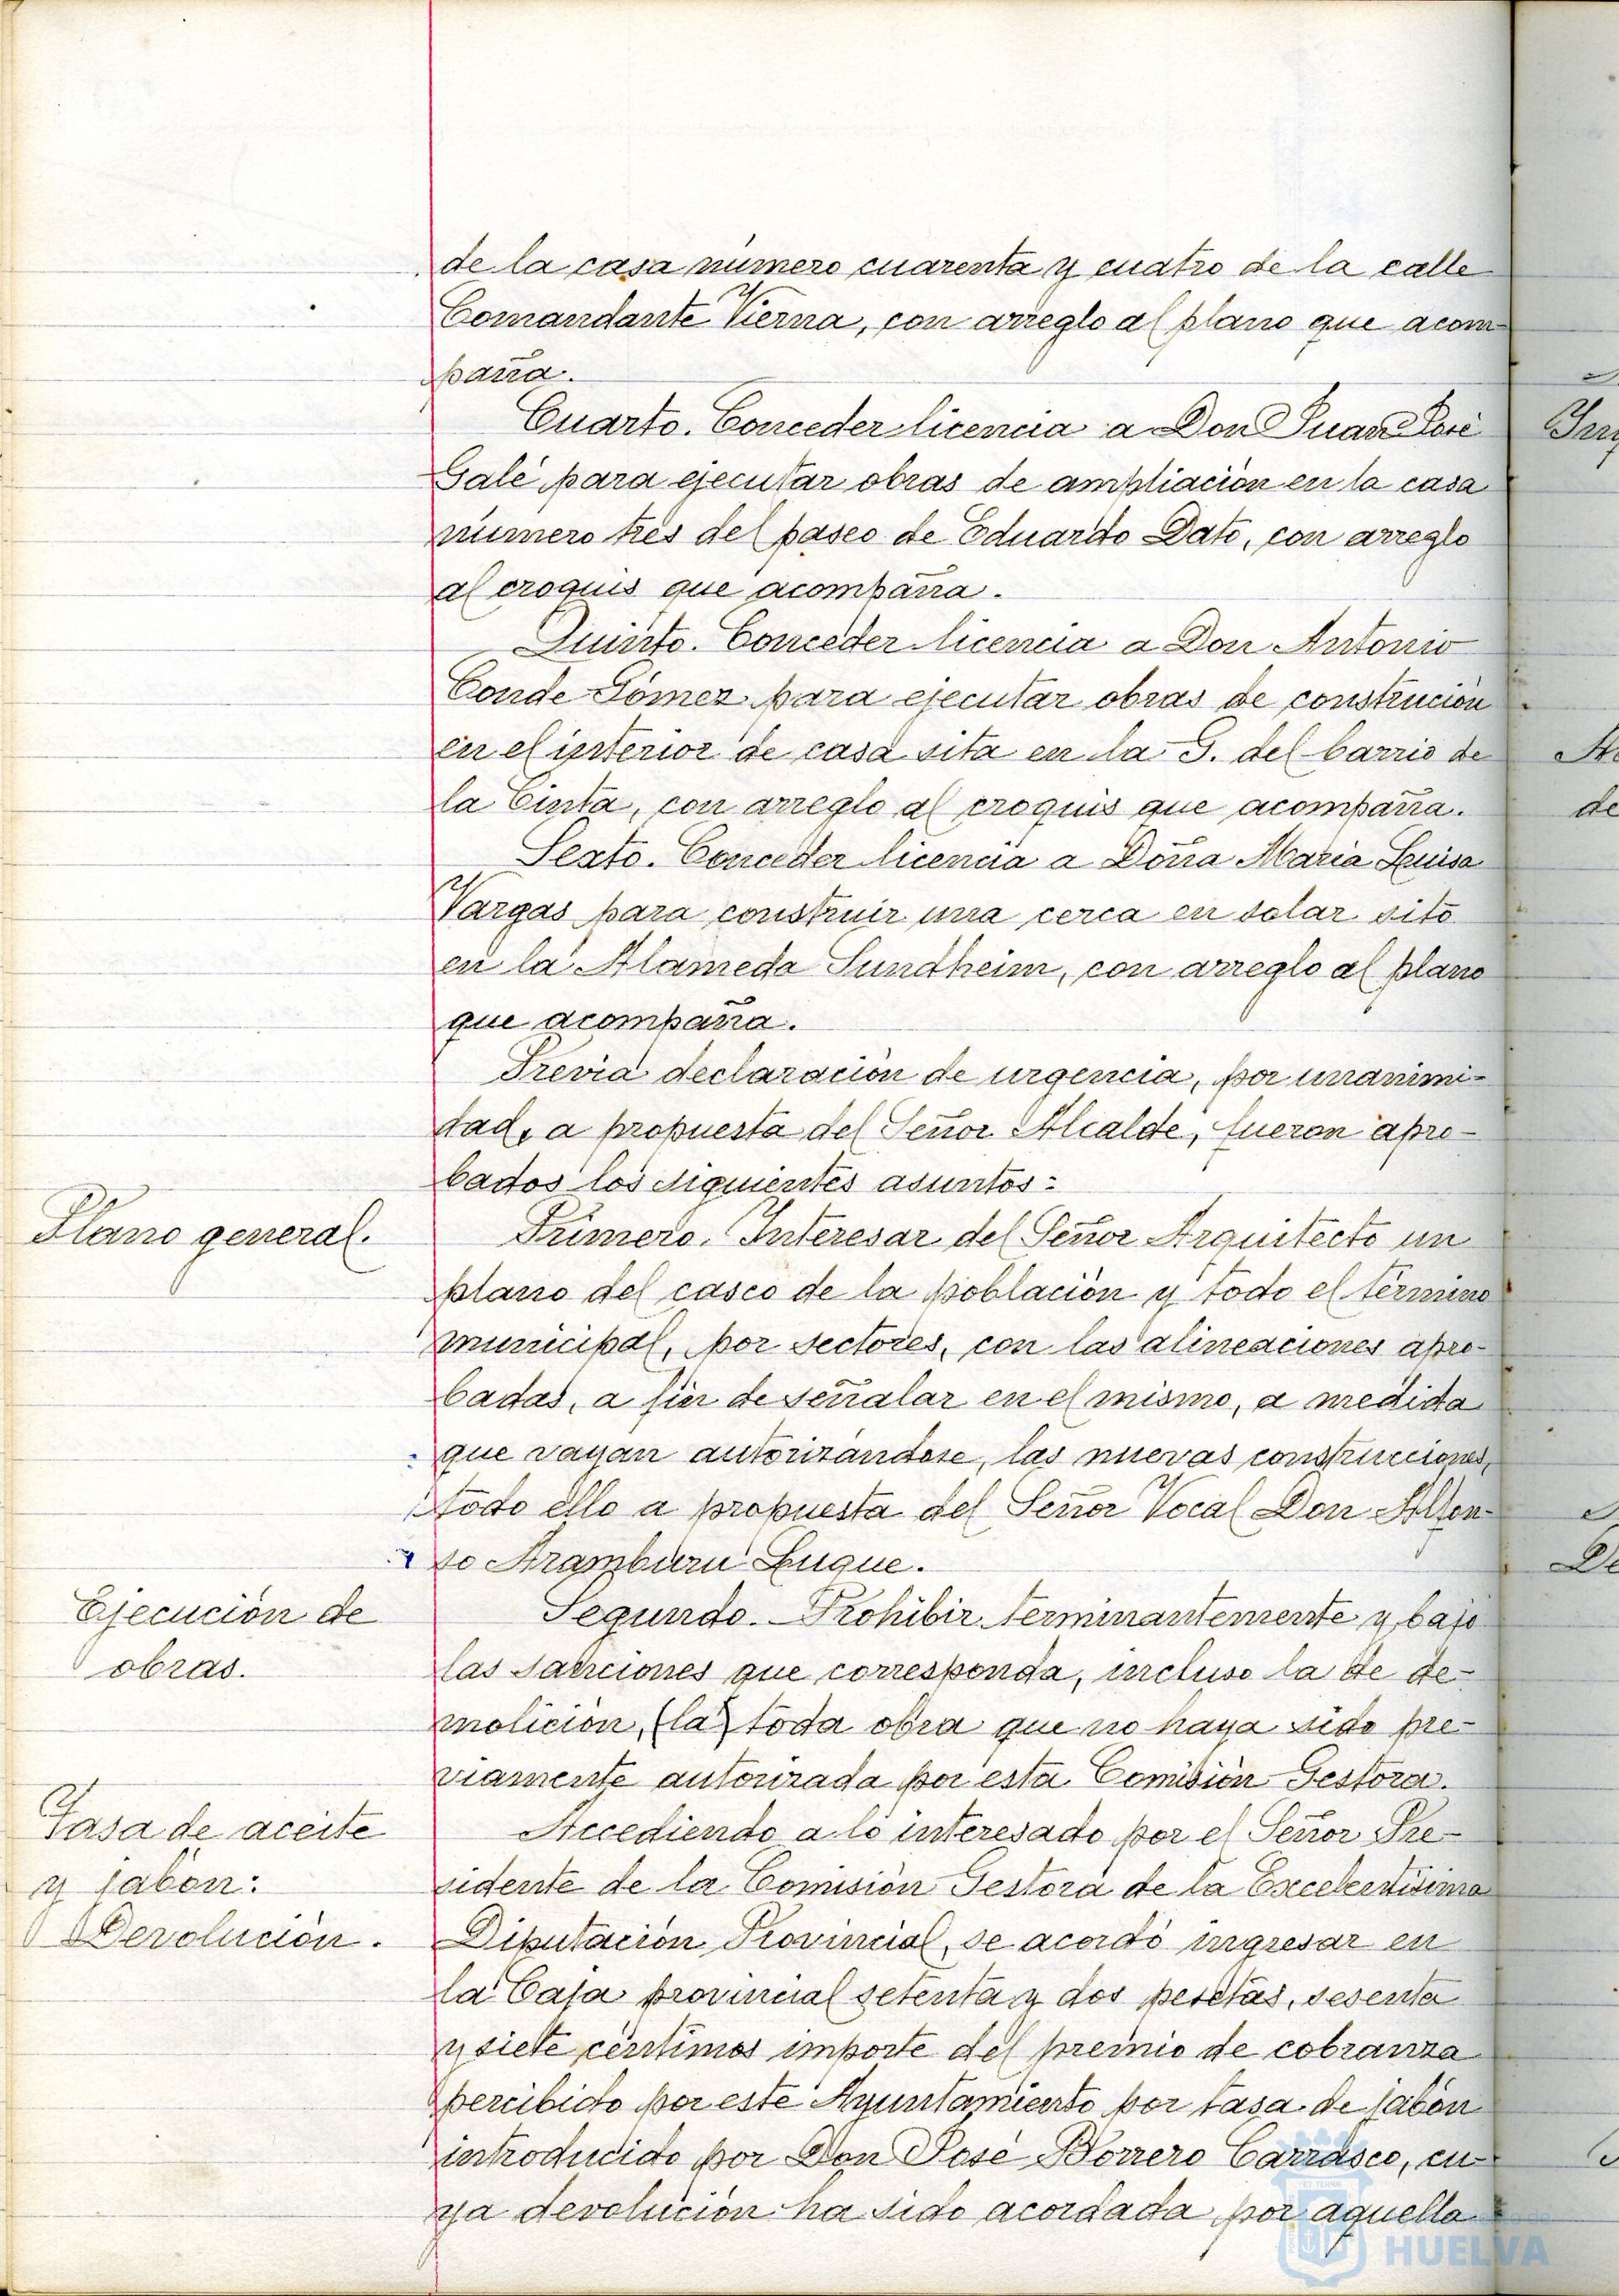 de la casa número cuarenta y cuatro de la calle
Comandante Vierna, con arreglo al plano que acom-
paña.
Cuarto. Conceder licencia a Don Juan José
Galé para ejecutar obras de ampliación en la casa
número tres del paseo de Eduardo Dato, con arreglo
al croquis que acompaña.
Quinto. Conceder licencia a Don Antonio
Conde Gómez para ejecutar obras de construción
en el interior de casa sita en la G. del barrio de
la Cinta, con arreglo al croquis que acompaña.
Sexto. Conceder licencia a Doña Maria Luisa
Vargas para construir una cerca en solar sito
en la Alameda Sundheim, con arreglo al plano
que acompaña.
Previa declaración de urgencia, por unanimi-
dad, a propuesta del Señor Alcalde, fueron apro-
bados los siguientes asuntos:
Plano general.
Primero. Interesar del Señor Arquitecto un
plano del casco de la población y todo el término
municipal, por sectores, con las alineaciones apro-
badas, a fin de señalar en el mismo, a medida
que vayan autorizándose, las nuevas construcciones,
todo ello a propuesta del Señor Vocal Don Alfon-
so Aramburu Luque.
Ejecución de
obras.
Segundo. Prohibir terminantemente y bajo
las sanciones que corresponda, incluso la de de-
molición, (la) toda obra que no haya sido pre-
viamente autorizada por esta Comisión Gestora.
Tasa de aceite
y jabón:
Devolución.
Accediendo a lo interesado por el Señor Pre-
sidente de la Comisión Gestora de la Excelentísima
Diputación Provincial, se acordó ingresar en
la Caja provincial setenta y dos pesetas, sesenta
y siete céntimos importe del premio de cobranza
percibido por este Ayuntamiento por tasa de jabón
introducido por Don José Borrero Carrasco, cu-
ya devolución ha sido acordada por aquella
HUELVA